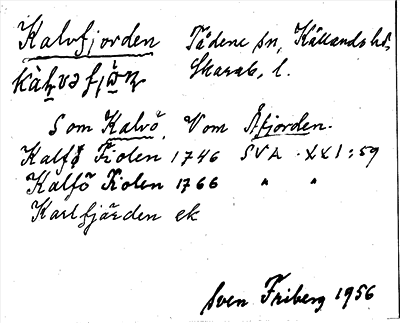 Kalvfjorden Tådene sn, Kållands hd,
Skarab. l.
Som Kalvö, V om Åfjorden.
Kalfö Fiolen 1746 SVA. XXI:59
Kalfö Fiolen 1766 " "
Karlfjärden ek
Sven Friberg 1956